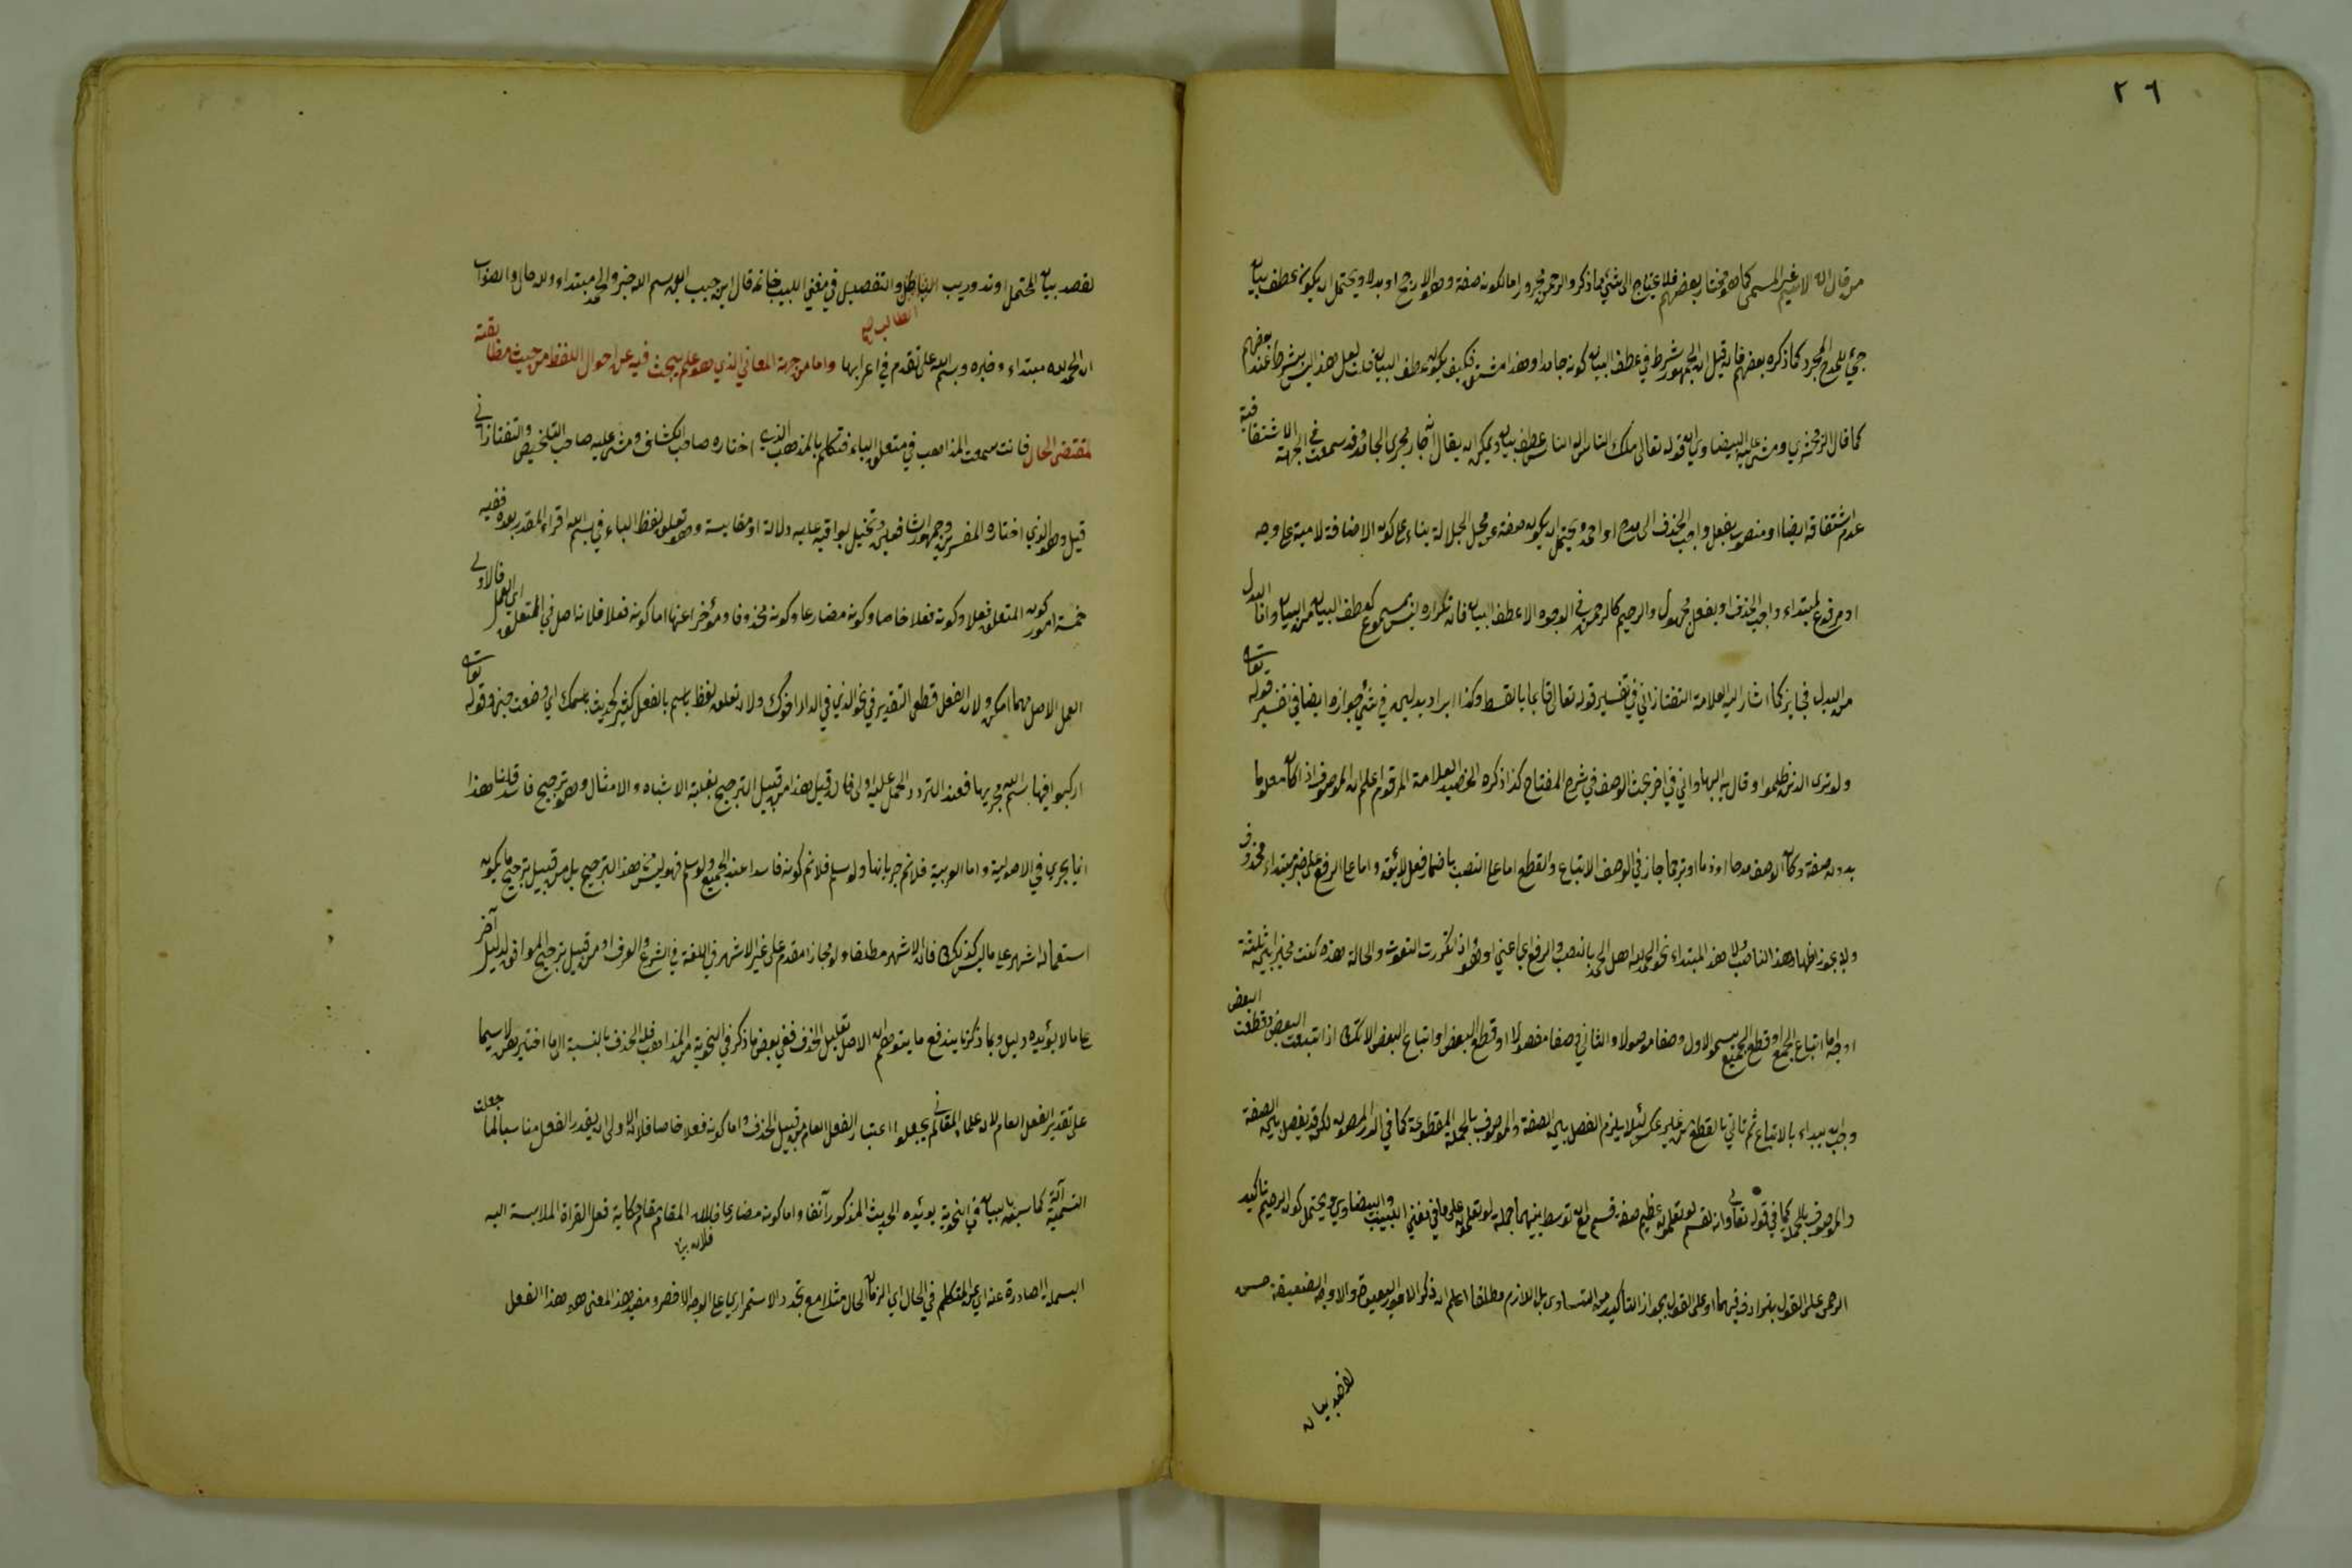 ٢٦
من قال الاسم غير المسمى كما هو مختار بعضهم فلا يحتاج الى شئ مما ذكر والرحمن مجرور اما لكونه صفة وهو الارجح او بدلا ويحتمل ان يكون عطف بيان
جئ للمدح المجرد كما ذكره بعضهم فان قيل ان الجمهور شرط في عطف البيان كونه جامدا وهذا مشتق فكيف يكون عطف البيان قلت لعل هذا ليس بشرط عند بعضهم
كما قال الزمخشري ومشى عليه البيضاوي في قوله تعالى ملك الناس اله الناس عطف بيان ويمكن ان يقال انه جار مجرى الجامد وقد سمعت في الجهة الاشتقاقية
عدم اشتقاقه ايضا او منصوب بفعل واجب الحذف اي امدح او احمد ويحتمل ان يكون صفة عن محل الجلالة بناء على كون الاضافة لامية على وجه
او مرفوع لمبتداء واجب الحذف او بفعل مجهول والرحيم كالرحمن في الوجوه الا عطف البيان فان تكراره ليس بمسموع كعطف البيان من البيان واما البدل
من البدل فجايز كما اشار اليه العلامة التفتازاني في تفسير قوله تعالى قائما بالقسط وكذا ايراد بدلين في شئ جوازه ايضا في تفسير قوله تعالى
ولو ترى الذين ظلموا وقال به البهلواني في اخر بحث الوصف في شرح المفتاح كذا ذكره الحفيد العلامة المرقوم اعلم ان الموصوف اذا كان معلوما
بدون صفة وكان الوصف مدحا او ذما او ترحما جاز في الوصف الاتباع والقطع اما على النصب باضمار فعل لايق واما على الرفع على خبر مبتداء محذوف
ولا يجوز اظهار هذا الناصب ولا هذا المبتداء نحو الحمد لله اهل الحمد بالنصب والرفع اي اعني او هو واذا تكررت النعوت والحالة هذه كنت مخيرا بين ثلثة
اوجه اما اتباع الجميع او قطع الجميع يسمى الاول وصفا موصولا والثاني وصفا مفصولا او قطع البعض واتباع البعض الا انك اذا اتبعت البعض وقطعت البعض
وجب ان يبداء بالاتباع ثم تاتي بالقطع من غير عكس لئلا يلزم الفصل بين الصفة والموصوف بالجملة المقطوعة كما في الدر المصون لكن قد يفصل بين الصفة
والموصوف بالجملة كما في قوله تعالى وانه لقسم لو تعلمون عظيم صفة قسم مع انه توسط بينهما جملة لو تعلمون على ما في مغني اللبيب والبيضاوي ويحتمل كون الرحيم تاكيد
الرحمن على القول بترادف فيهما او على القول بجواز التاكيد من المتساوي بل اللازم مطلقا اعلم ان ذكر الامور البعيدة والاوجه الضعيفة حسن
لقصد بيان
لقصد بيان المحتمل او تدريب الطالب والتفصيل في مغني اللبيب خاتمة قال ابن حبيب ان بسم الله خبر والحمد مبتداء ولله حال والصواب
الطالب صح
ان الحمد لله مبتداء وخبره وبسم الله على تقدم في اعرابها واما من جهة المعاني الذي هو علم يبحث فيه عن احوال اللفظ من حيث مطابقته
لمقتضى الحال فانت سمعت المذاهب في متعلق الباء فتكلم بالمذهب الذي اختاره صاحب الكشاف ومشى عليه صاحب التلخيص والتفتازاني
قيل وهو الذي اختاره المفسرين وجمهور الشافعيين وتخيل بواقيه عليه دلالة او مقايسة وهو تعلق لفظ الباء في بسم الله اقراء المقدر بعده ففيه
خمسة امور كون المتعلق فعلا وكونه فعلا خاصا وكونه مضارعا وكونه محذوفا ومؤخرا عنها اما كونه فعلا فلانه اصل في المتعلق اي العمل فالاولى
العمل الاصل مهما امكن ولان الفعل قطعي التقدير في نحو الذي في الدار اخوك ولان تعلق لفظ باسم بالفعل كثير كحديث باسمك اي وضعت جنبي وقوله تعالى
اركبوا فيها بسم الله مجريها فعند التردد الحمل عليه اولى فان قيل هذا من قبيل الترجيح بغلبة الاشباه والامثال وهو ترجيح فاسد قلنا هذا
انما يجري في الاصولية واما العربية فلا نم جريانها ولو سلم فلا نم كونه فاسدا عند الجميع ولو سلم فهو ليس هذا الترجيح بل من قبيل ترجيح ما يكون
استعماله اشهر على ما ليس كذلك فان الاشهر مطلقا ولو مجازا مقدم على غير الاشهر في اللغة في الشرع والعرف او من قبيل ترجيح الموافق لدليل آخر
على ما لا يؤيده دليل وبما ذكرنا يندفع ما يتوهم ان الاصل تعليل الحذف ففي بعض ما ذكر في النحوية من المذاهب قلة الحذف بالنسبة الى ما اختير هنا لا سيما
على تقدير الفعل العام لان علماء المعاني لم يجعلوا اعتبار الفعل العام من قبيل الحذف واما كونه فعلا خاصا فلانه الاولى ان يقدر الفعل مناسبا لما جعلت
التسمية آلة كما سبق بيانه في النحوية يؤيده الحديث المذكور آنفا واما كونه مضارعا فلان المقام مقام حكاية فعل القراة الملابسة اليه
البسملة الصادرة عنه اي عن المتكلم في الحال اي الزمان الحال مثلا مع تجدد الاستمراري على الوجه الاخصر ومفيد هذا المعنى هو هذا الفعل